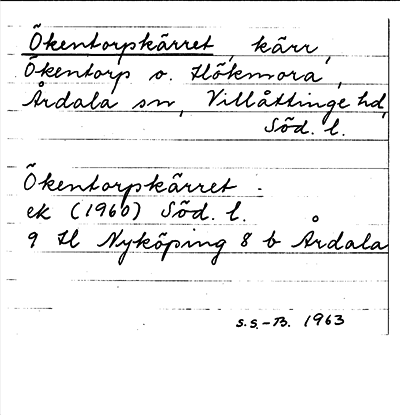 Ökentorpskärret, kärr,
Ökentorp o. Hökmora,
Årdala sn, Villåttinge hd,
Söd. l.
Ökentorpskärret.
ek (1960) Söd. l.
9 H Nyköping 8 b Årdala
S.S.-B. 1963